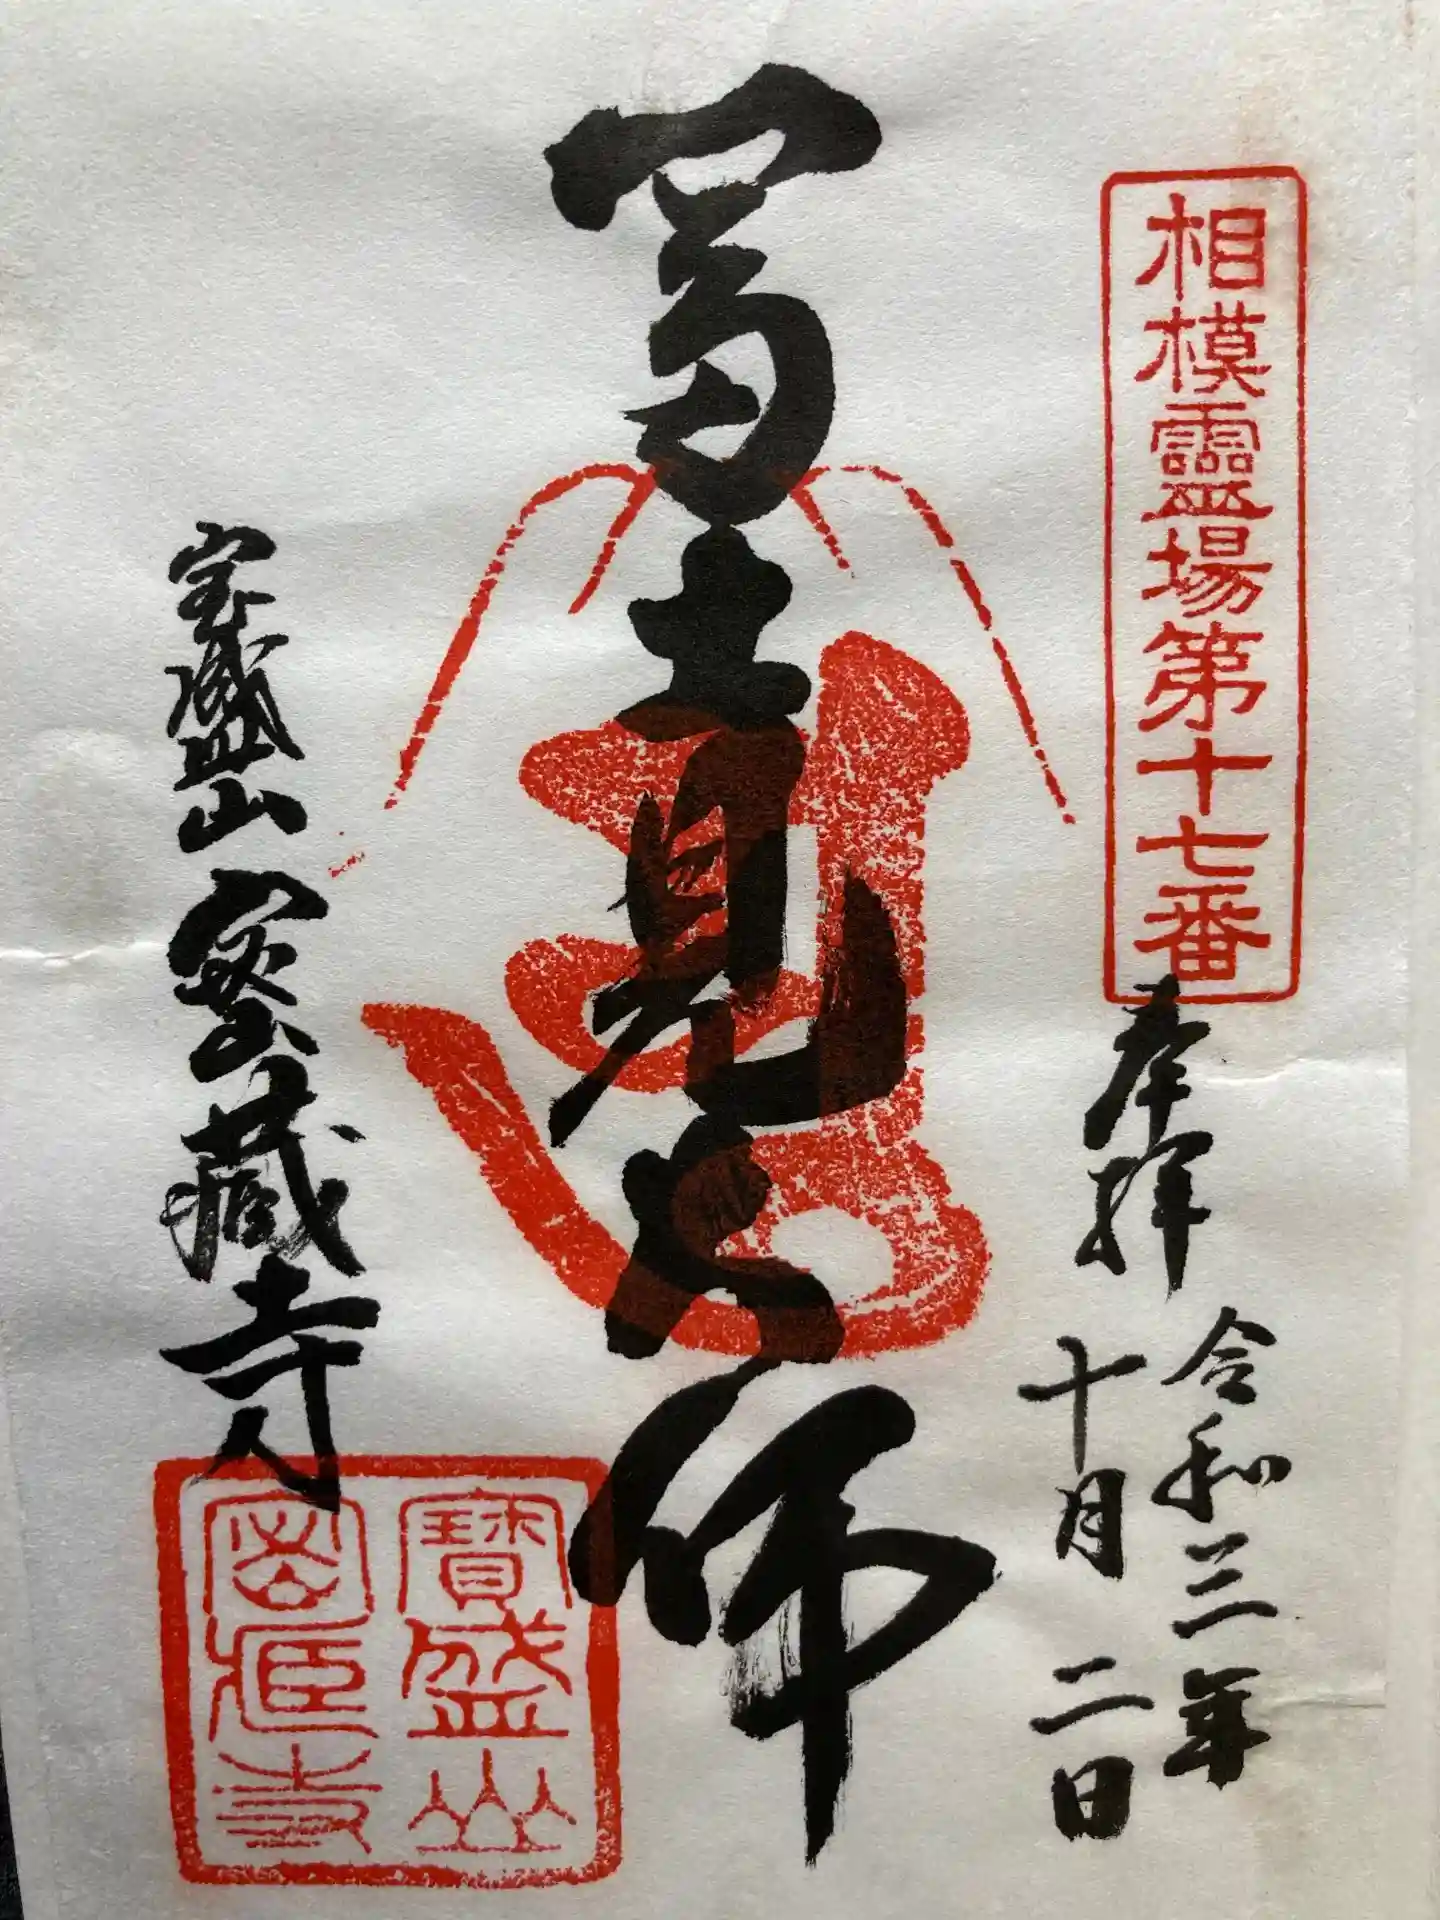 相模靈場第十七番
奉拝
令和三年
十月二日
富士見大師
宝盛山 密蔵寺
寶盛山
密蔵寺